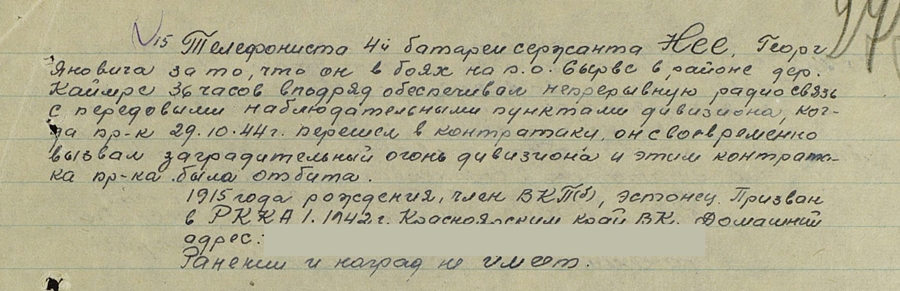 15 Телефониста 4й батареи сержанта Нее, Георг
Яновича за то, что он в боях на п.о. Вырве в районе дер.
Каймре 36 часов вподряд обеспечивал непрерывную радиосвязь
с передовыми наблюдательными пунктами дивизиона, ког-
да пр-к 29.10.44г. перешел в контратаки, он своевременно
вызвал заградительный огонь дивизиона и этим контрата-
ка пр-ка была отбита.
1915 года рождения, член ВКП(б), эстонец. Призван
в РККА 1.1942г. Красноярским край ВК. Домашний
адрес:
Ранений и наград не имеет.